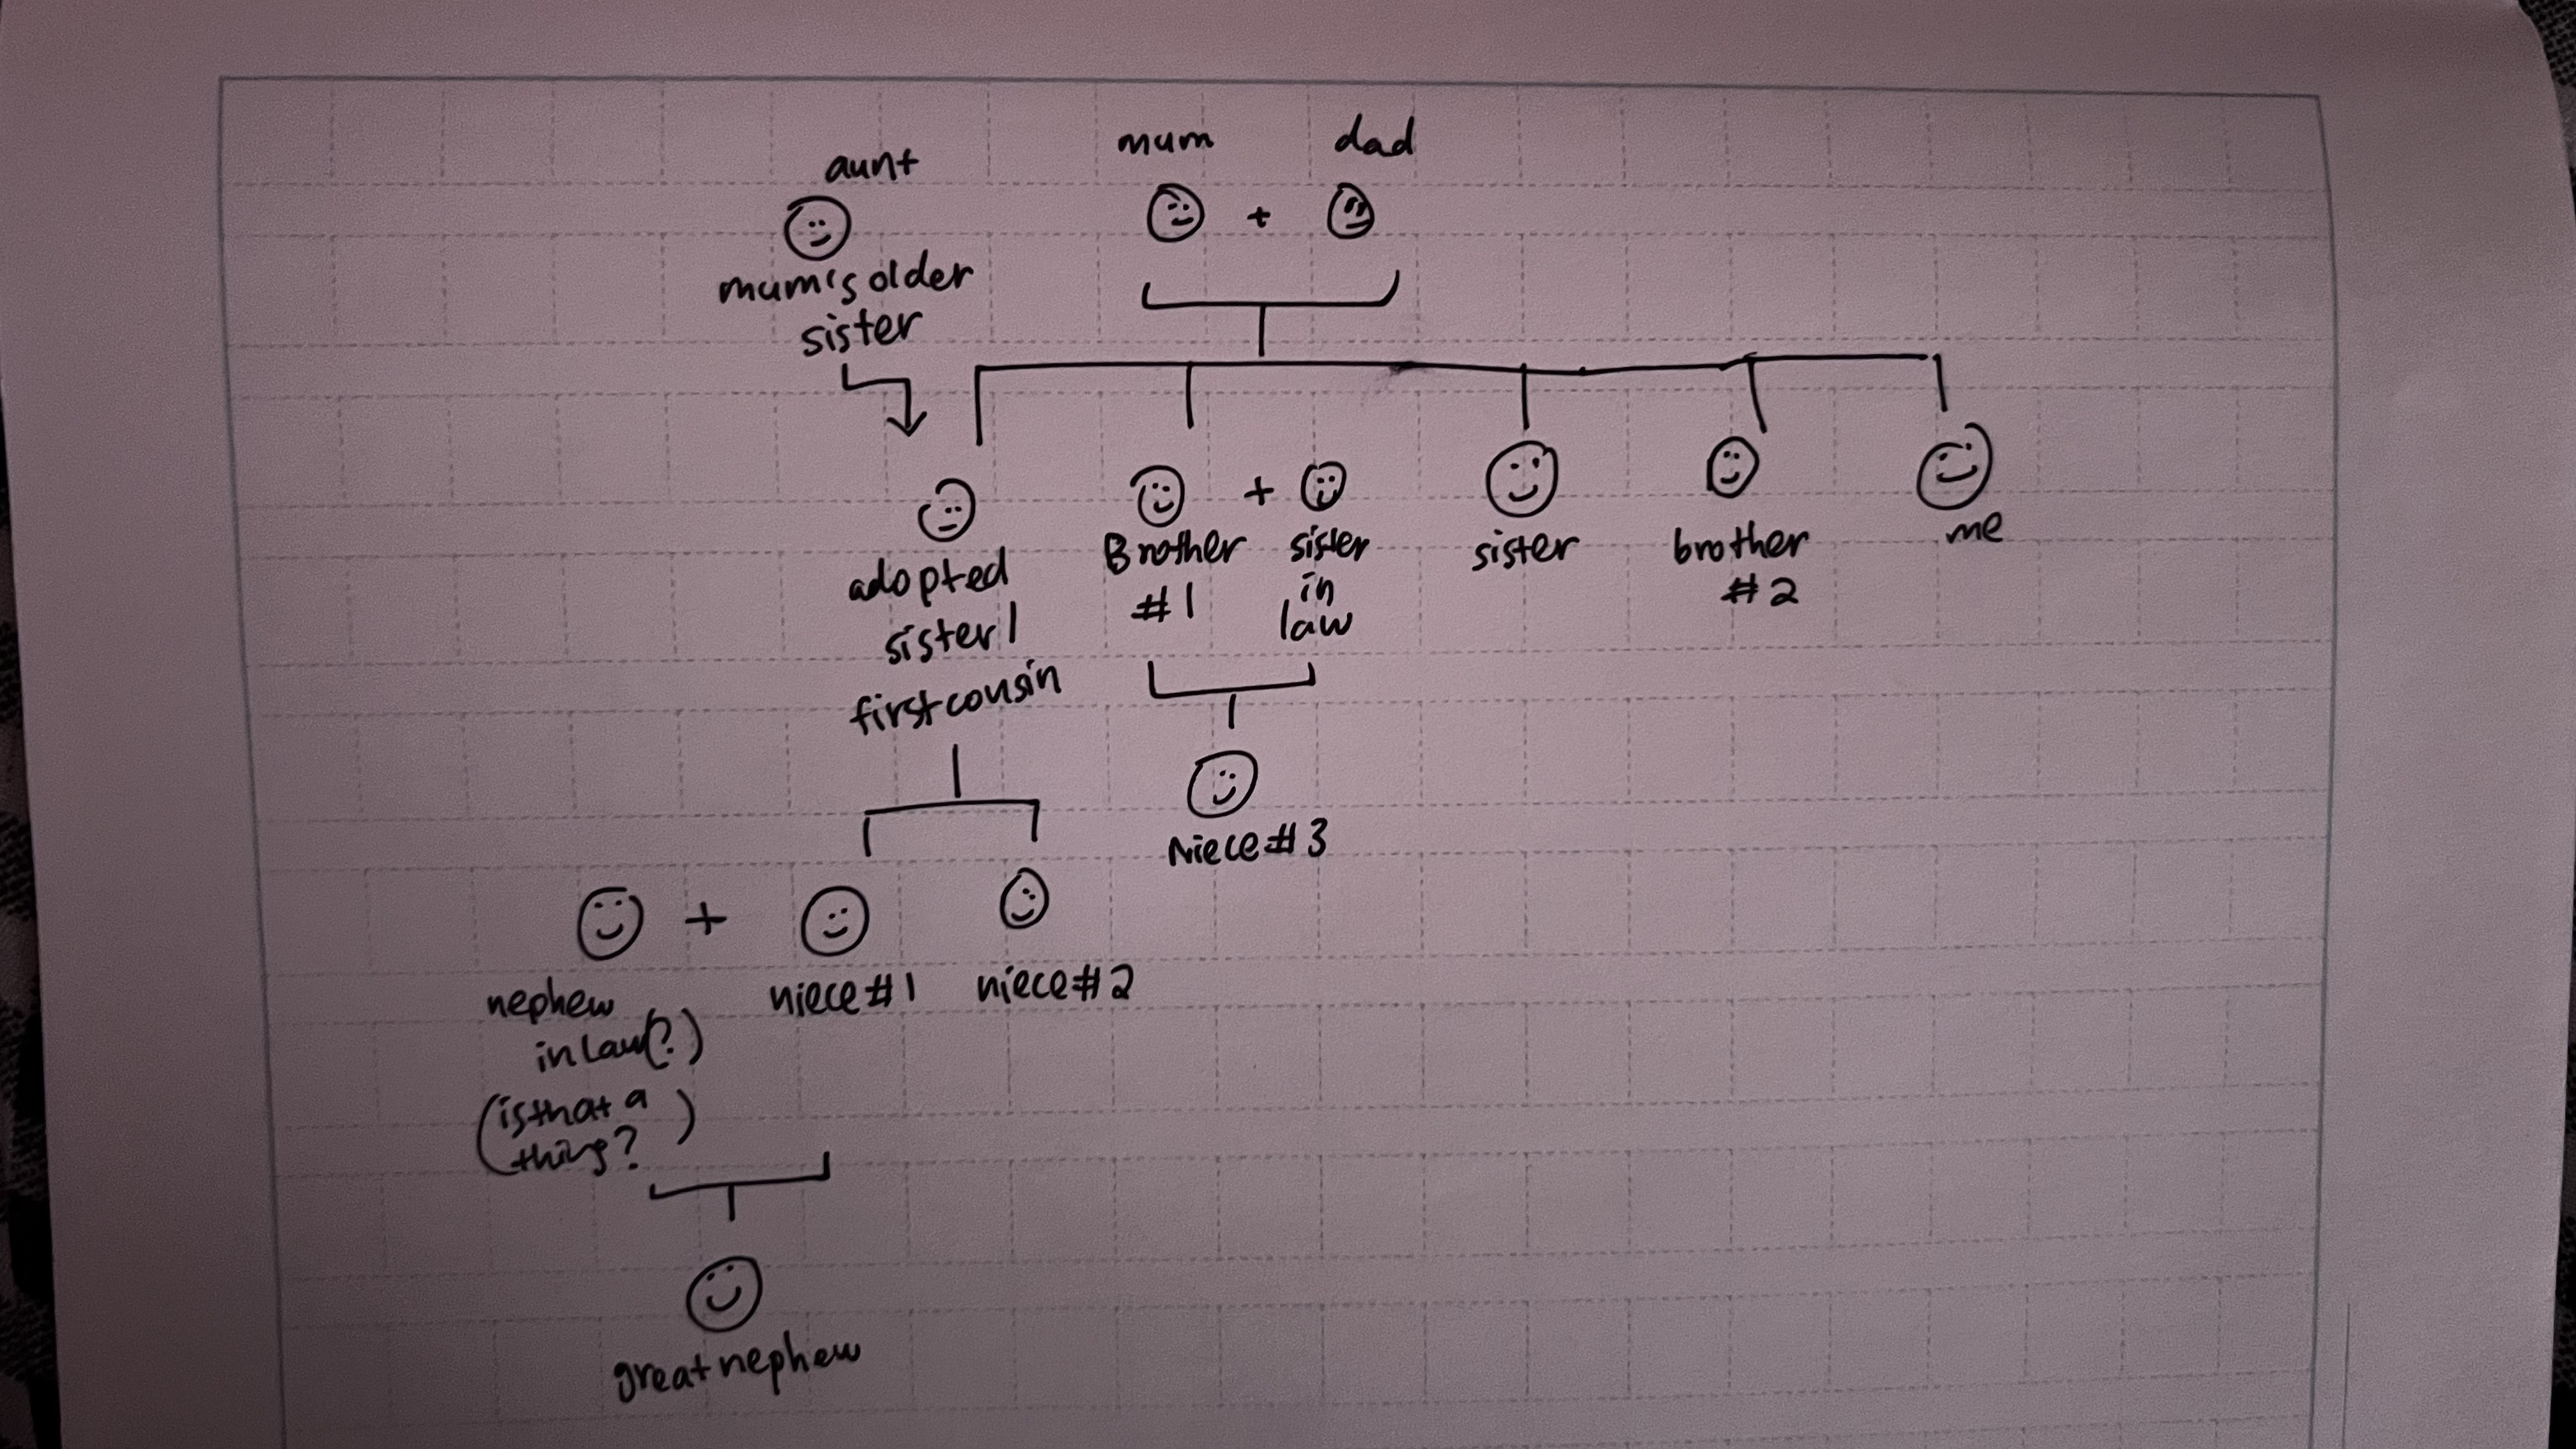 mum dad
aunt
mum's older
sister
adopted
sister/
first cousin
Brother
#1
sister
in
law
sister
brother
#2
me
Niece #3
nephew
in law(?)
(is that a
thing?)
niece #1
niece #2
great nephew